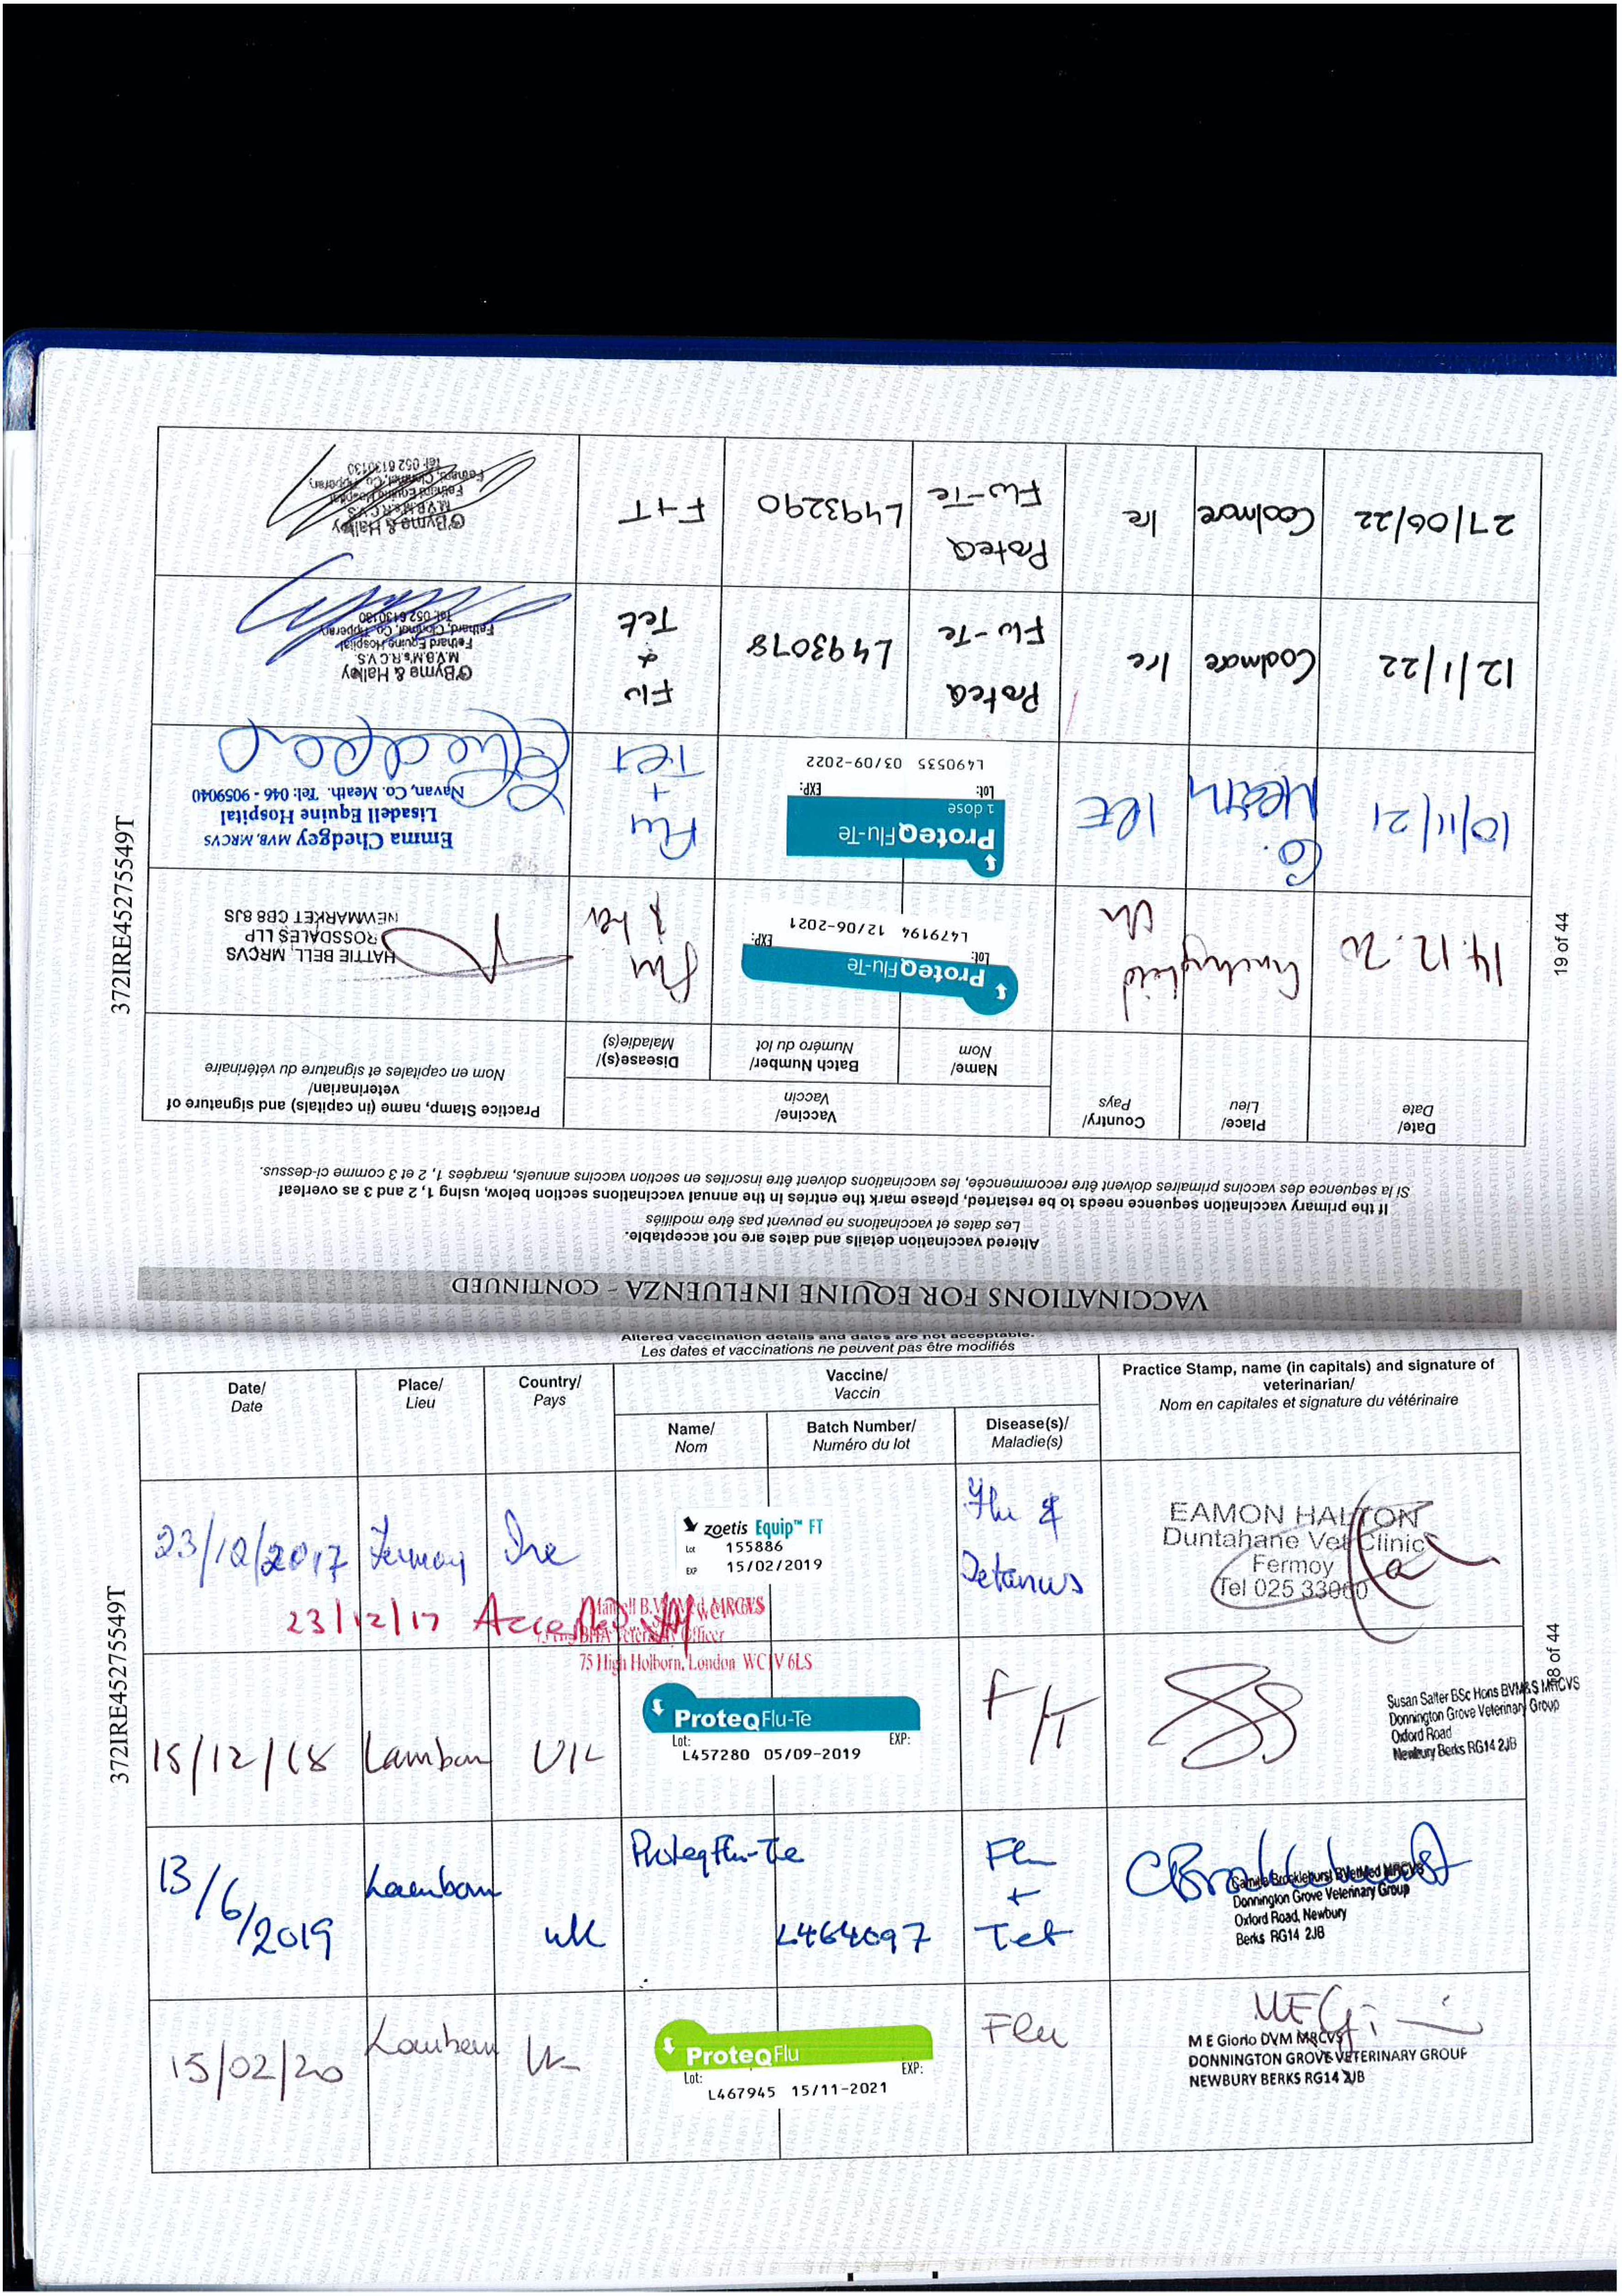 VACCINATIONS FOR EQUINE INFLUENZA - CONTINUED
Altered vaccination details and dates are not acceptable.
Les dates et vaccinations ne peuvent pas être modifiés
If the primary vaccination sequence needs to be restarted, please mark the entries in the annual vaccinations section below, using 1, 2 and 3 as overleaf
Si la sequence des vaccins primaires doivent être recommencée, les vaccinations doivent être inscrites en section vaccins annuels, marqées 1, 2 et 3 comme ci-dessus.
Date/
Date
Place/
Lieu
Country/
Pays
Vaccine/
Vaccin
Name/
Nom
Batch Number/
Numéro du lot
Disease(s)/
Maladie(s)
Practice Stamp, name (in capitals) and signature of
veterinarian/
Nom en capitales et signature du vétérinaire
14.12.20
ProteqFlu-Te
Lot: EXP:
L479194 12/06-2021
Flu
HATTIE BELL, MRCVS
ROSSDALES LLP
NEWMARKET CB8 8JS
10/11/21
Co.
Meath
IRE
ProteqFlu-Te
1 dose
Lot: EXP:
L490535 03/09-2022
Flu
+
Tet
Emma Chedgey MVB, MRCVS
Lisadell Equine Hospital
Navan, Co. Meath. Tel: 046 - 9059040
12/1/22
Coolmore
Ire
ProteQ
Flu-Te
L493078
Flu
&
Tet
O'Byrne & Halley
M.V.B.M's.R.C.V.S.
Fethard Equine Hospital
Fethard, Clonmel, Co. Tipperary
Tel: 052 6130130
27/06/22
Coolmore
Ire
ProteQ
Flu-Te
L493290
F+T
O'Byrne & Halley
M.V.B.M's.R.C.V.S.
Fethard Equine Hospital
Fethard, Clonmel, Co. Tipperary
Tel: 052 6130130
372IRE45275549T
19 of 44
Altered vaccination details and dates are not acceptable.
Les dates et vaccinations ne peuvent pas être modifiés
Date/
Date
Place/
Lieu
Country/
Pays
Vaccine/
Vaccin
Name/
Nom
Batch Number/
Numéro du lot
Disease(s)/
Maladie(s)
Practice Stamp, name (in capitals) and signature of
veterinarian/
Nom en capitales et signature du vétérinaire
23/12/2017
Fermoy
Ire
zoetis Equip™ FT
Lot 155886
EXP 15/02/2019
Flu &
Tetanus
EAMON HALTON
Duntahane Vet Clinic
Fermoy
Tel 025 33060
23/12/17 Accepted
75 High Holborn, London WC1V 6LS
15/12/18
Lambourn
UK
ProteqFlu-Te
Lot: EXP:
L457280 05/09-2019
F/T
Susan Salter BSc Hons BVM&S MRCVS
Donnington Grove Veterinary Group
Oxford Road
Newbury Berks RG14 2JB
13/6/2019
Lambourn
UK
ProteqFlu-Te
L464097
Flu
+
Tet
Camilla Brocklehurst BVetMed MRCVS
Donnington Grove Veterinary Group
Oxford Road, Newbury
Berks RG14 2JB
15/02/20
Lambourn
UK
ProteqFlu
Lot: EXP:
L467945 15/11-2021
Flu
M E Giorio DVM MRCVS
DONNINGTON GROVE VETERINARY GROUP
NEWBURY BERKS RG14 2JB
372IRE45275549T
18 of 44